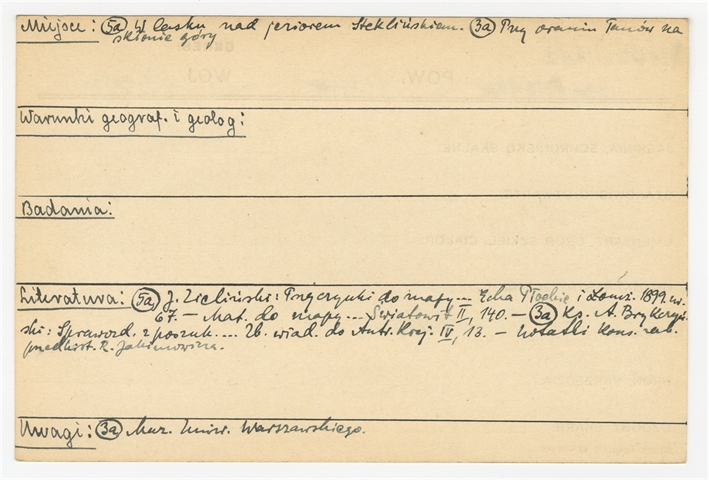 Miejsce: 5a W lasku nad jeziorem Steklińskiem. 3a Przy oraniu łanów na
skłonie góry
Warunki geograf. i geolog:
Badania:
Literatura: 5a J. Zieliński: Przyczynki do mapy... Echa Płockie i Łomż. 1899. nr.
67. – Mat. do mapy... Światowit II, 140. – 3a Ks. A. Brykczyń-
ski: Sprawozd. z poszuk.... Zb. wiad. do Antr. Kraj. IV, 13. – Notatki kons. zab.
przedhist. R. Jakimowicza.
Uwagi: 3a Muz. Uniw. Warszawskiego.